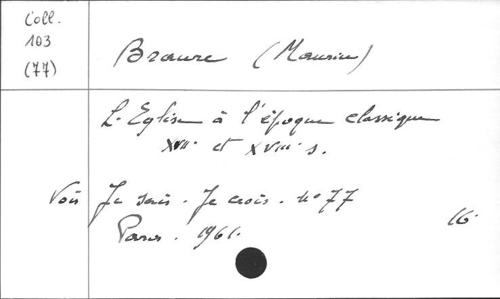 Coll.
103
(77)
Braure (Maurice)
L'Eglise à l'époque classique
XVIIe et XVIIIe s.
Voir Je sais. Je crois. no 77
Paris. 1961.
16.